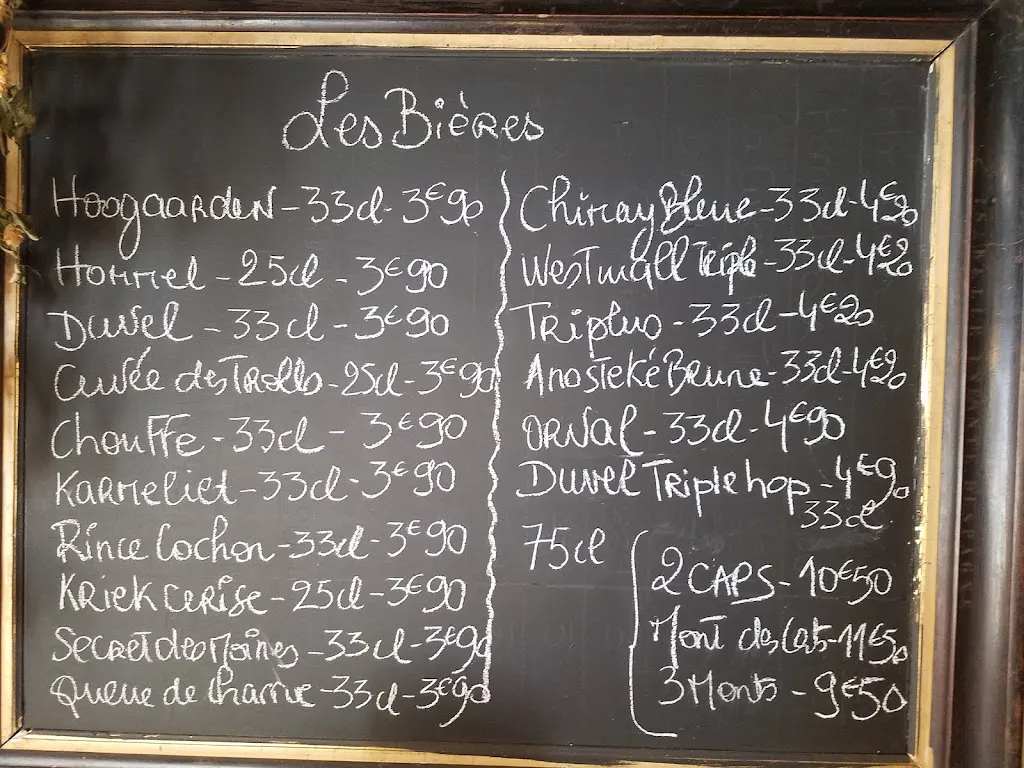 Les Bières
Hoogaarden - 33cl - 3€90
Hommel - 25cl - 3€90
Duvel - 33cl - 3€90
Cuvée des Trolls - 25cl - 3€90
Chouffe - 33cl - 3€90
Karmeliet - 33cl - 3€90
Rince Cochon - 33cl - 3€90
Kriek cerise - 25cl - 3€90
Secret des Moines - 33cl - 3€90
Queue de Charrue - 33cl - 3€90
Chimay Bleue - 33cl - 4€20
Westmall triple - 33cl - 4€20
Triplus - 33cl - 4€20
Anosteké Brune - 33cl - 4€20
Orval - 33cl - 4€90
Duvel Triple hop - 4€90
33cl
75cl
2 CAPS - 10€50
Mont des Cats - 11€50
3 Monts - 9€50